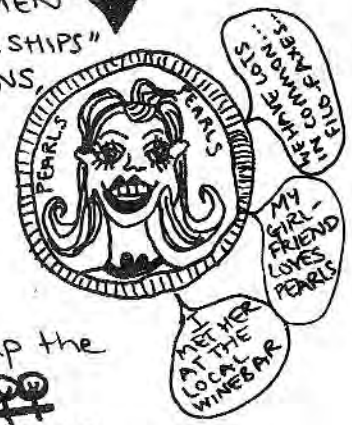 SHIPS"
PEARLS
PEARLS
WE HAVE LOTS
IN COMMON...
FILO-FAXES...
MY
GIRL-
FRIEND
LOVES
PEARLS
I
MET HER
AT THE
LOCAL
WINEBAR
up the